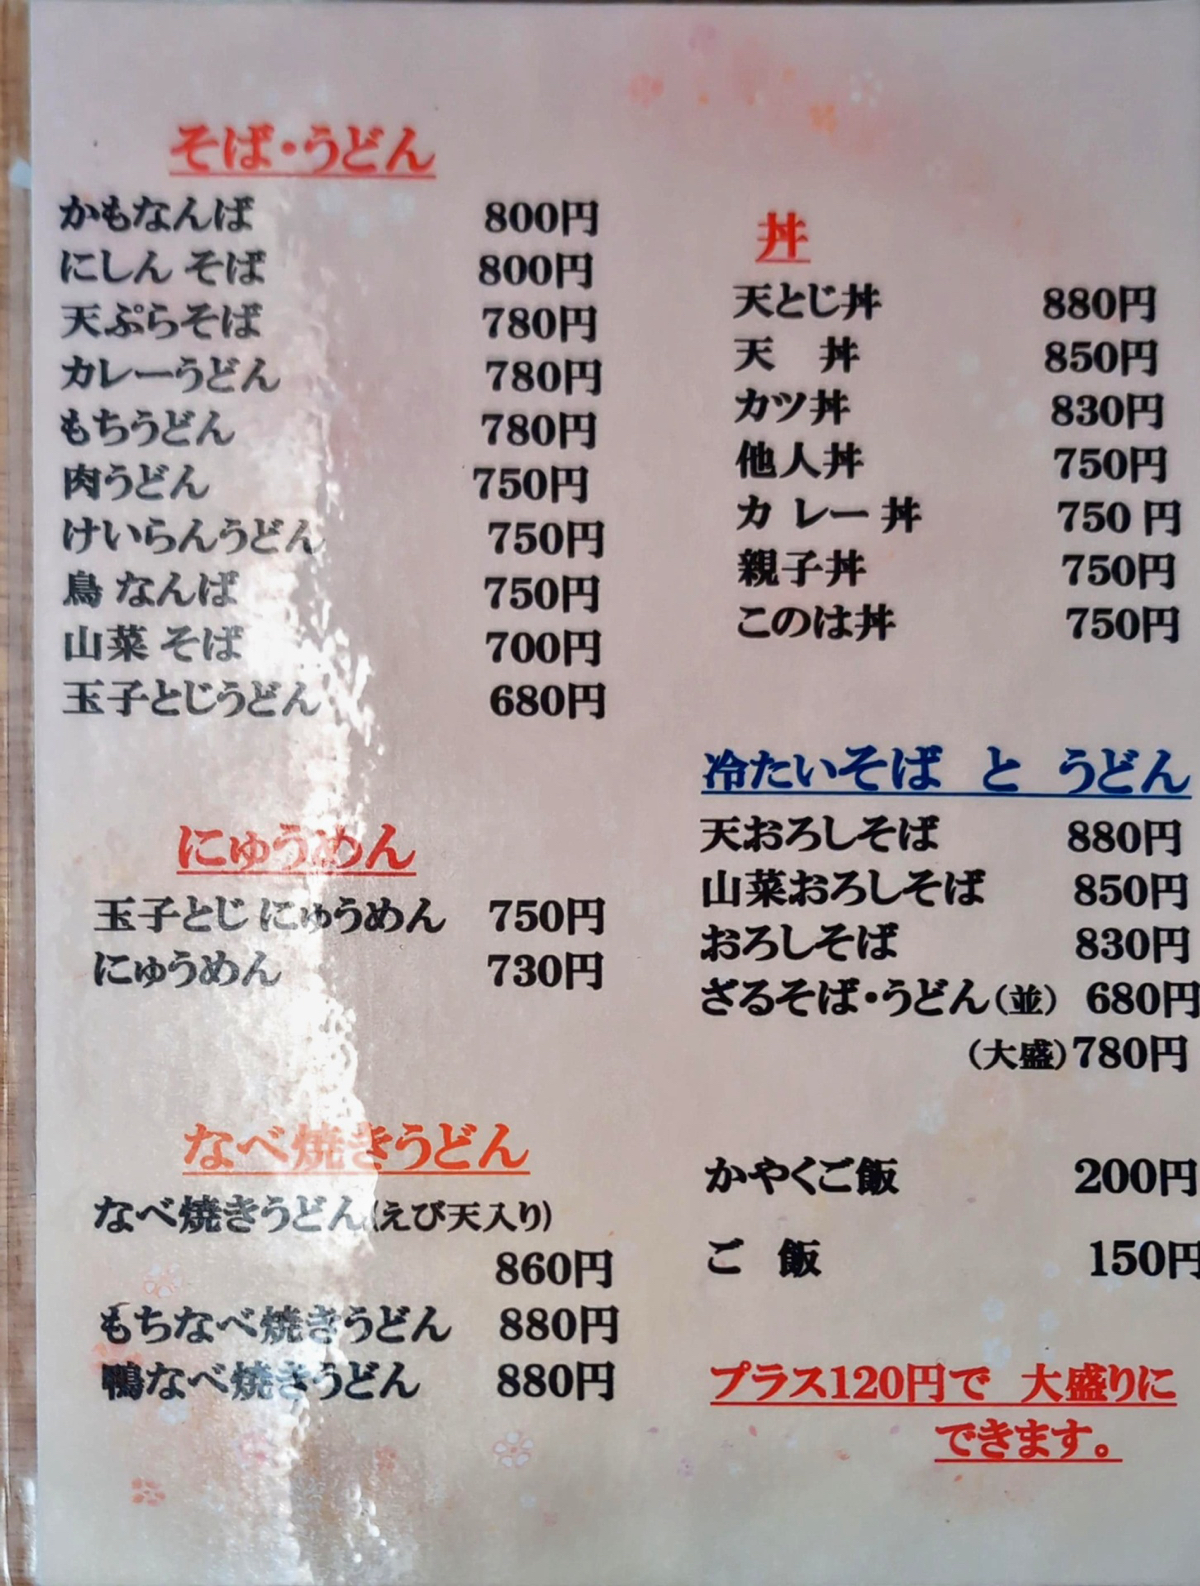 そば・うどん
かもなんば 800円
にしん そば 800円
天ぷらそば 780円
カレーうどん 780円
もちうどん 780円
肉うどん 750円
けいらんうどん 750円
鳥 なんば 750円
山菜 そば 700円
玉子とじうどん 680円
にゅうめん
玉子とじ にゅうめん 750円
にゅうめん 730円
なべ焼きうどん
なべ焼きうどん(えび天入り)
860円
もちなべ焼きうどん 880円
鴨なべ焼きうどん 880円
丼
天とじ丼 880円
天 丼 850円
カツ丼 830円
他人丼 750円
カ レー 丼 750 円
親子丼 750円
このは丼 750円
冷たいそば と うどん
天おろしそば 880円
山菜おろしそば 850円
おろしそば 830円
ざるそば・うどん(並) 680円
(大盛)780円
かやくご飯 200円
ご 飯 150円
プラス120円で 大盛りに
できます。